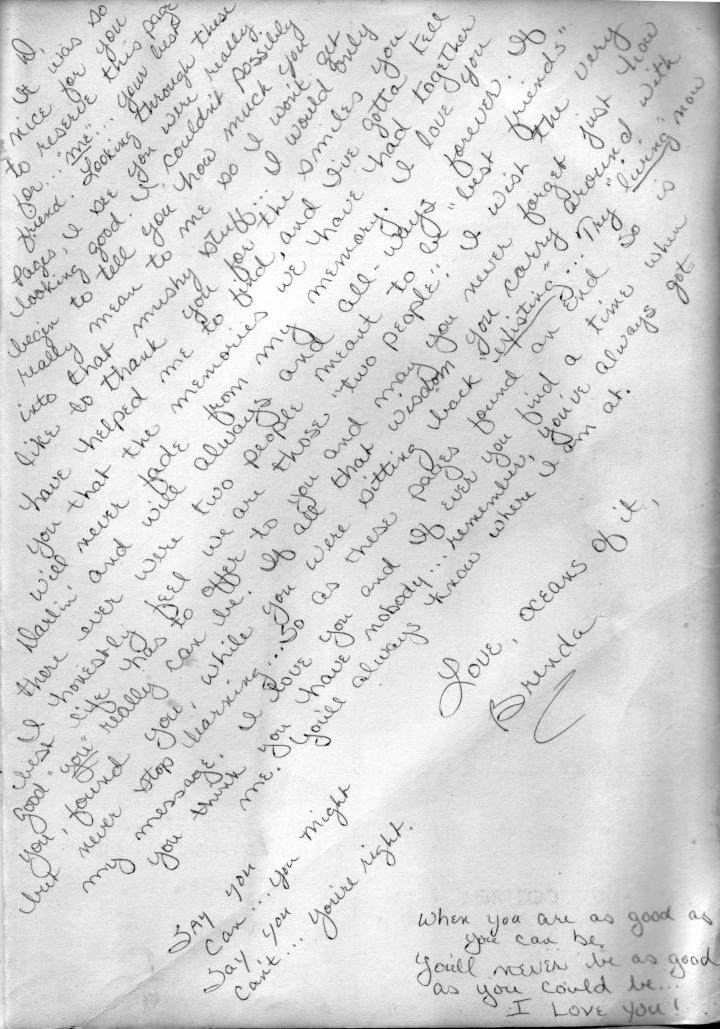 D,
It was so
nice for you
to reserve this page
for... me... your best
friend. Looking through these
pages, I see you were really
looking good. I couldn't possibly
begin to tell you how much you
really mean to me so I won't get
into that mushy stuff... I would only
like to thank you for the smiles you
have helped me to find, and I've gotta tell
you that the memories we have had together
will never fade from my memory. I love you
Darlin' and will always and all-ways forever. If
there ever were two people meant to be "best friends"
I honestly feel we are those "two people". I wish the very
best life has to offer to you and may you never forget just how
good "you" really can be. If all that wisdom you carry around with
you, found you, while you were sitting back "existing"... Try "living" now
but never stop learning... So as these pages found an end so is
my message. I love you and if ever you find a time when
you think you have nobody... remember, you've always got
me. You'll always know where I am at.
Love, oceans of it,
Brenda
Say you
can... you might
Say you
can't... you're right.
When you are as good as
you can be,
You'll never be as good
as you could be...
I Love You!